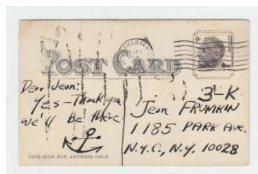 POST CARD
Dear Jean:
Yes - Thank you
we'll be there
3-K
Jean FRUMKIN
1185 PARK AVE.
N.Y.C., N.Y. 10028
THIS SIDE FOR ADDRESS ONLY